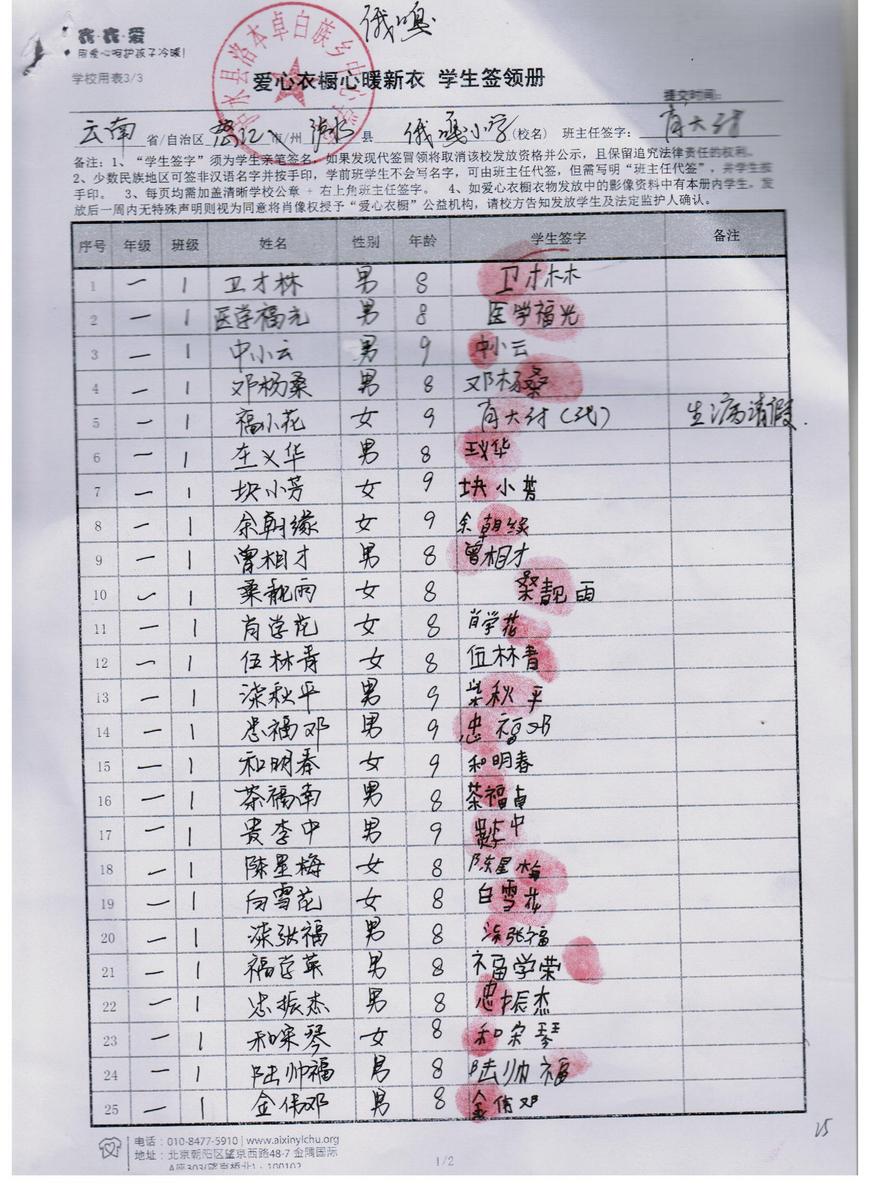 俄嘎
用爱心呵护孩子冷暖!
学校用表3/3
爱心衣橱心暖新衣 学生签领册
提交时间:
云南 省/自治区 怒江 市/州 泸水 县 俄嘎小学 (校名) 班主任签字: 肖大付
备注: 1、“学生签字”须为学生亲笔签名, 如果发现代签冒领将取消该校发放资格并公示, 且保留追究法律责任的权利。
2、少数民族地区可签非汉语名字并按手印, 学前班学生不会写名字, 可由班主任代签, 但需写明“班主任代签”, 并学生按
手印。 3、每页均需加盖清晰学校公章 + 右上角班主任签字。 4、如爱心衣橱衣物发放中的影像资料中有本册内学生, 发
放后一周内无特殊声明则视为同意将肖像权授予“爱心衣橱”公益机构, 请校方告知发放学生及法定监护人确认。
序号 年级 班级 姓名 性别 年龄 学生签字 备注
1 一 1 卫才林 男 8 卫才林
2 一 1 医学福光 男 8 医学福光
3 一 1 中小云 男 9 中小云
4 一 1 邓杨桑 男 8 邓杨桑
5 一 1 福小花 女 9 肖大付(代) 生病请假
6 一 1 王义华 男 8 王义华
7 一 1 块小芳 女 9 块小芳
8 一 1 余朝缘 女 9 余朝缘
9 一 1 曾相才 男 8 曾相才
10 一 1 桑靓雨 女 8 桑靓雨
11 一 1 肖学花 女 8 肖学花
12 一 1 伍林青 女 8 伍林青
13 一 1 柒秋平 男 9 柒秋平
14 一 1 忠福邓 男 9 忠福邓
15 一 1 和明春 女 9 和明春
16 一 1 茶福南 男 8 茶福
17 一 1 贵李中 男 9 贵李中
18 一 1 陈星梅 女 8 陈星梅
19 一 1 白雪花 女 8 白雪花
20 一 1 张福 男 8 张福
21 一 1 福学荣 男 8 福学荣
22 一 1 忠振杰 男 8 忠振杰
23 一 1 和宋琴 女 8 和宋琴
24 一 1 陆帅福 男 8 陆帅福
25 一 1 金伟邓 男 8 金伟邓
电话: 010-8477-5910 | www.aixinyichu.org
地址: 北京朝阳区望京西路48-7 金隅国际
A座303(望京桥北)· 100102
1/2
25